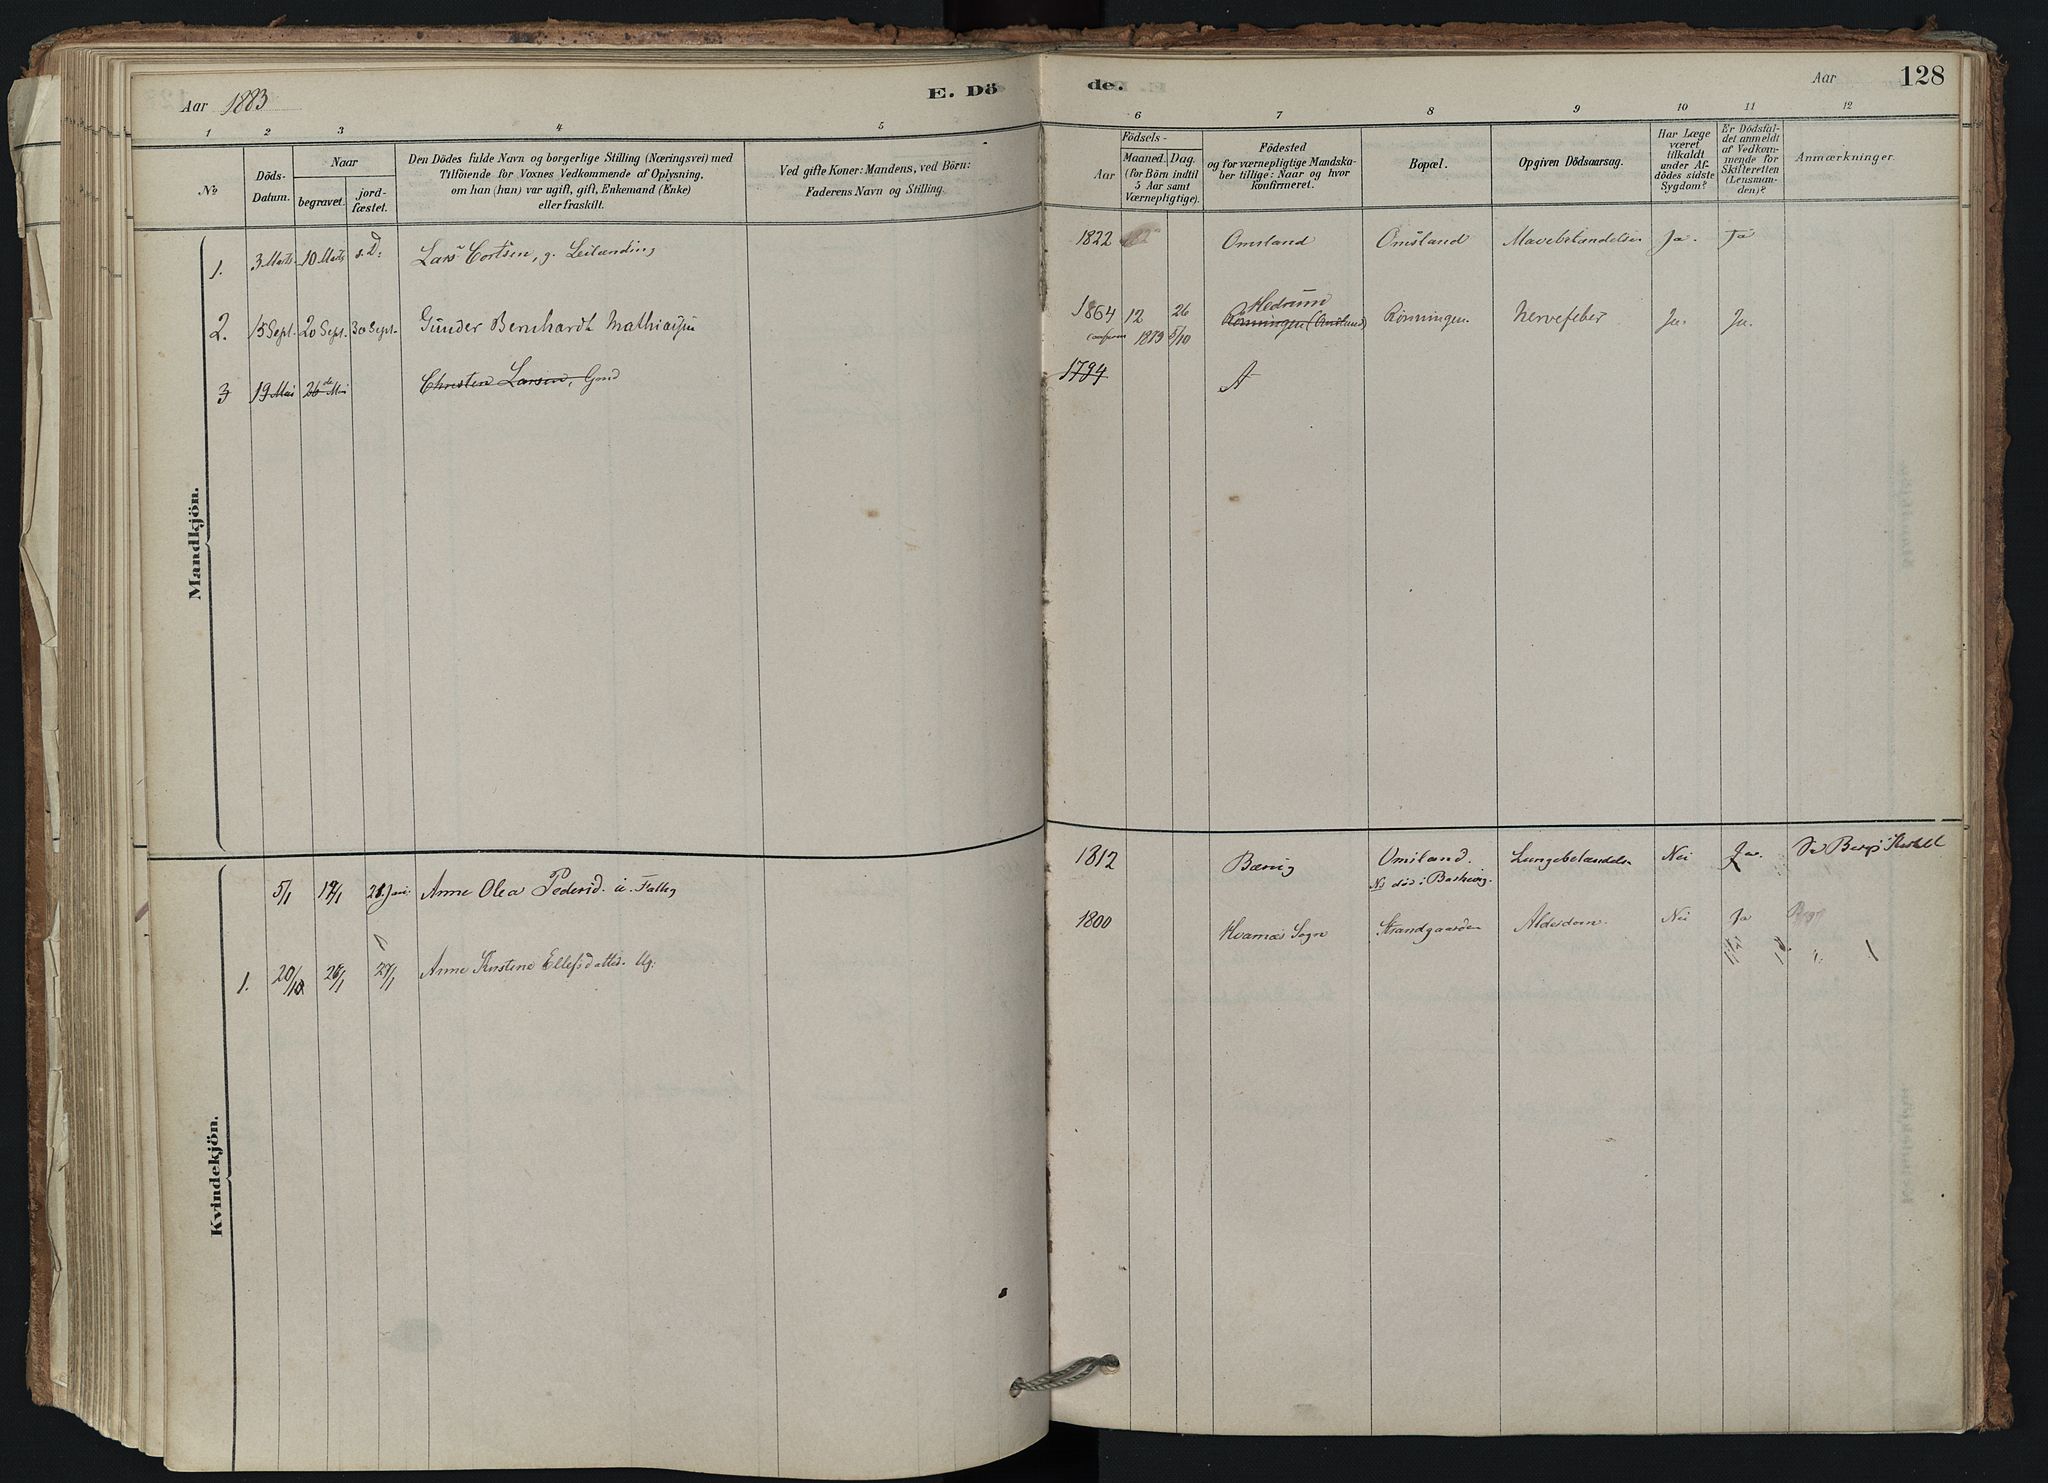 Aar 1883
E. Dö
de.
Aar
128
1 2 3 4 5
6 7 8 9 10 11 12
No
Döds-
Datum.
Naar
begravet.
jord-
fæstet.
Den Dödes fulde Navn og borgerlige Stilling (Næringsvei) med
Tilföiende for Voxnes Vedkommende af Oplysning,
om han (hun) var ugift, gift, Enkemand (Enke)
eller fraskilt.
Ved gifte Koner: Mandens, ved Börn:
Faderens Navn og Stilling.
Födsels-
Aar
Maaned.
Dag.
(for Börn indtil
5 Aar samt
Værnepligtige).
Födested
og for værnepligtige Mandska-
ber tillige: Naar og hvor
konfirmeret.
Bopæl.
Opgiven Dödsaarsag.
Har Læge
været
tilkaldt
under Af-
dödes sidste
Sygdom?
Er Dödsfal-
det anmeldt
af Vedkom-
mende for
Skifteretten
(Lensman-
den)?
Anmærkninger.
Mandkjön.
1. 3 Marts 10 Marts s. D. Lars Cortsen, g. Leilænding 1822 Omsland Omsland Mavebetændelse Ja. Ja
2. 15 Sept. 20 Sept. 30 Sept. Gunder Bernhardt Mathiassen 1864 12 26 Hedrum Rönningen Nervefeber Ja. Ja.
1879 5/10 Rönningen (Omsland)
3 19 Mai 26de Mai Christen Larsen, Gmd 1794 A
Kvindekjön.
5/1 28 Jan. Anne Olea Pedersd. u. Fattig 1812 Omsland. Lungebetændelse Nei Ja.
NB död i
1. 27/1 Anne Kirstine Ellefsdatter. Ug. 1800 Hvarnæs Sogn Strandgaarden Alderdom. Nei Ja